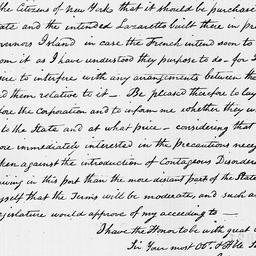 the Citizens of New York that it should be purchase
ate and the intended Lazaretto built there in pr
overnors Island in case the French intend soon to
om it as I have understood they purpose to do - for I
ire to interfere with any arrangements between the
d them relative to it - Be pleased therefore to lay
fore the Corporation and to inform me whether they w
to the State and at what price - considering that
ore immediately interested in the Precautions necess
ken against the introduction of Contageous Disorders
iving in this port than the more distant part of the State
yself that the Terms will be moderate, and such a
egislature would approve of my acceeding to -
I have the Honor to be with great
Sir Your most Obt. & Hble S